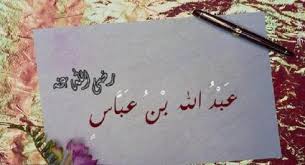 عَبْدُ الله بْنُ عَبَّاسٍ
رضي الله عنه